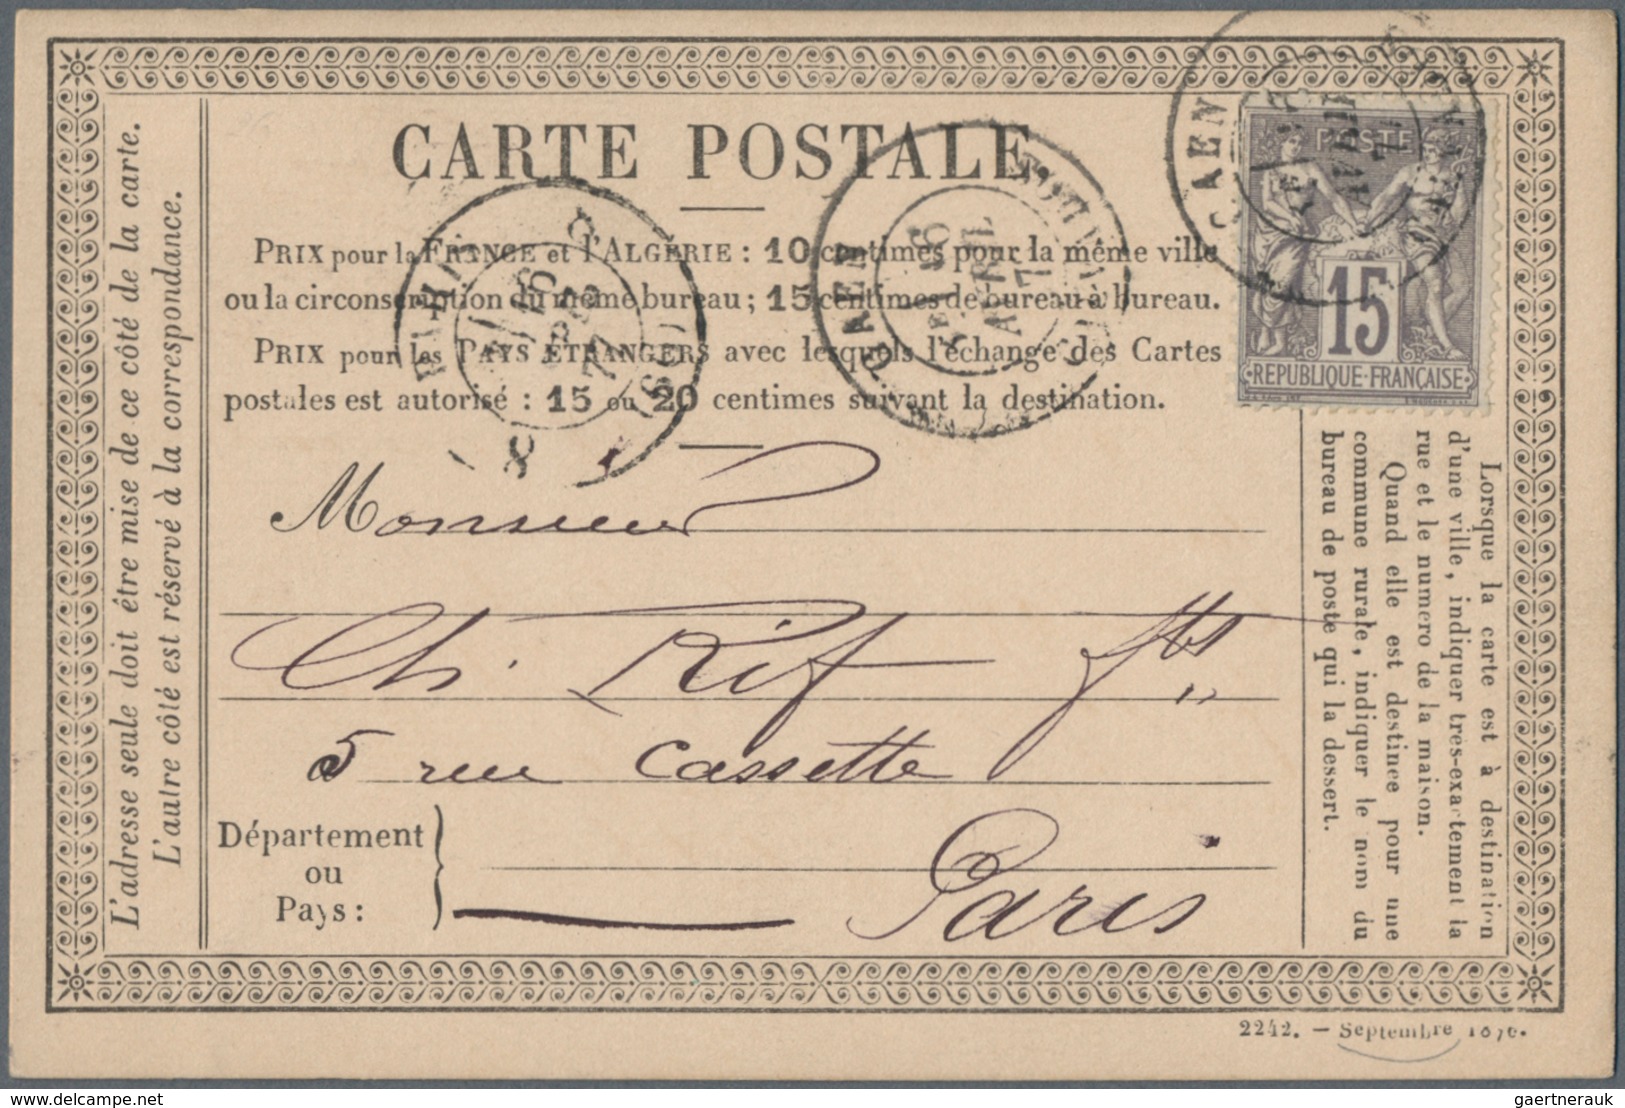 CARTE POSTALE
PRIX pour la FRANCE et l'ALGÉRIE : 10 centimes pour la même ville
ou la circonscription du même bureau ; 15 centimes de bureau à bureau.
PRIX pour les PAYS ÉTRANGERS avec lesquels l'échange des Cartes
postales est autorisé : 15 ou 20 centimes suivant la destination.
L'adresse seule doit être mise de ce côté de la carte.
L'autre côté est réservé à la correspondance.
CAEN
POSTE
15
REPUBLIQUE FRANÇAISE
CAEN
6
AVRIL
PARIS
6
77
(60)
Monsieur
Ch. Rif
5 rue Cassette
Département
ou
Pays :
Paris
Lorsque la carte est à destination
d'une ville, indiquer très-exactement la
rue et le numero de la maison.
Quand elle est destinee pour une
commune rurale, indiquer le nom du
bureau de poste qui la dessert.
2242. — Septembre 1876.
delcampe.net
gaertnerauk